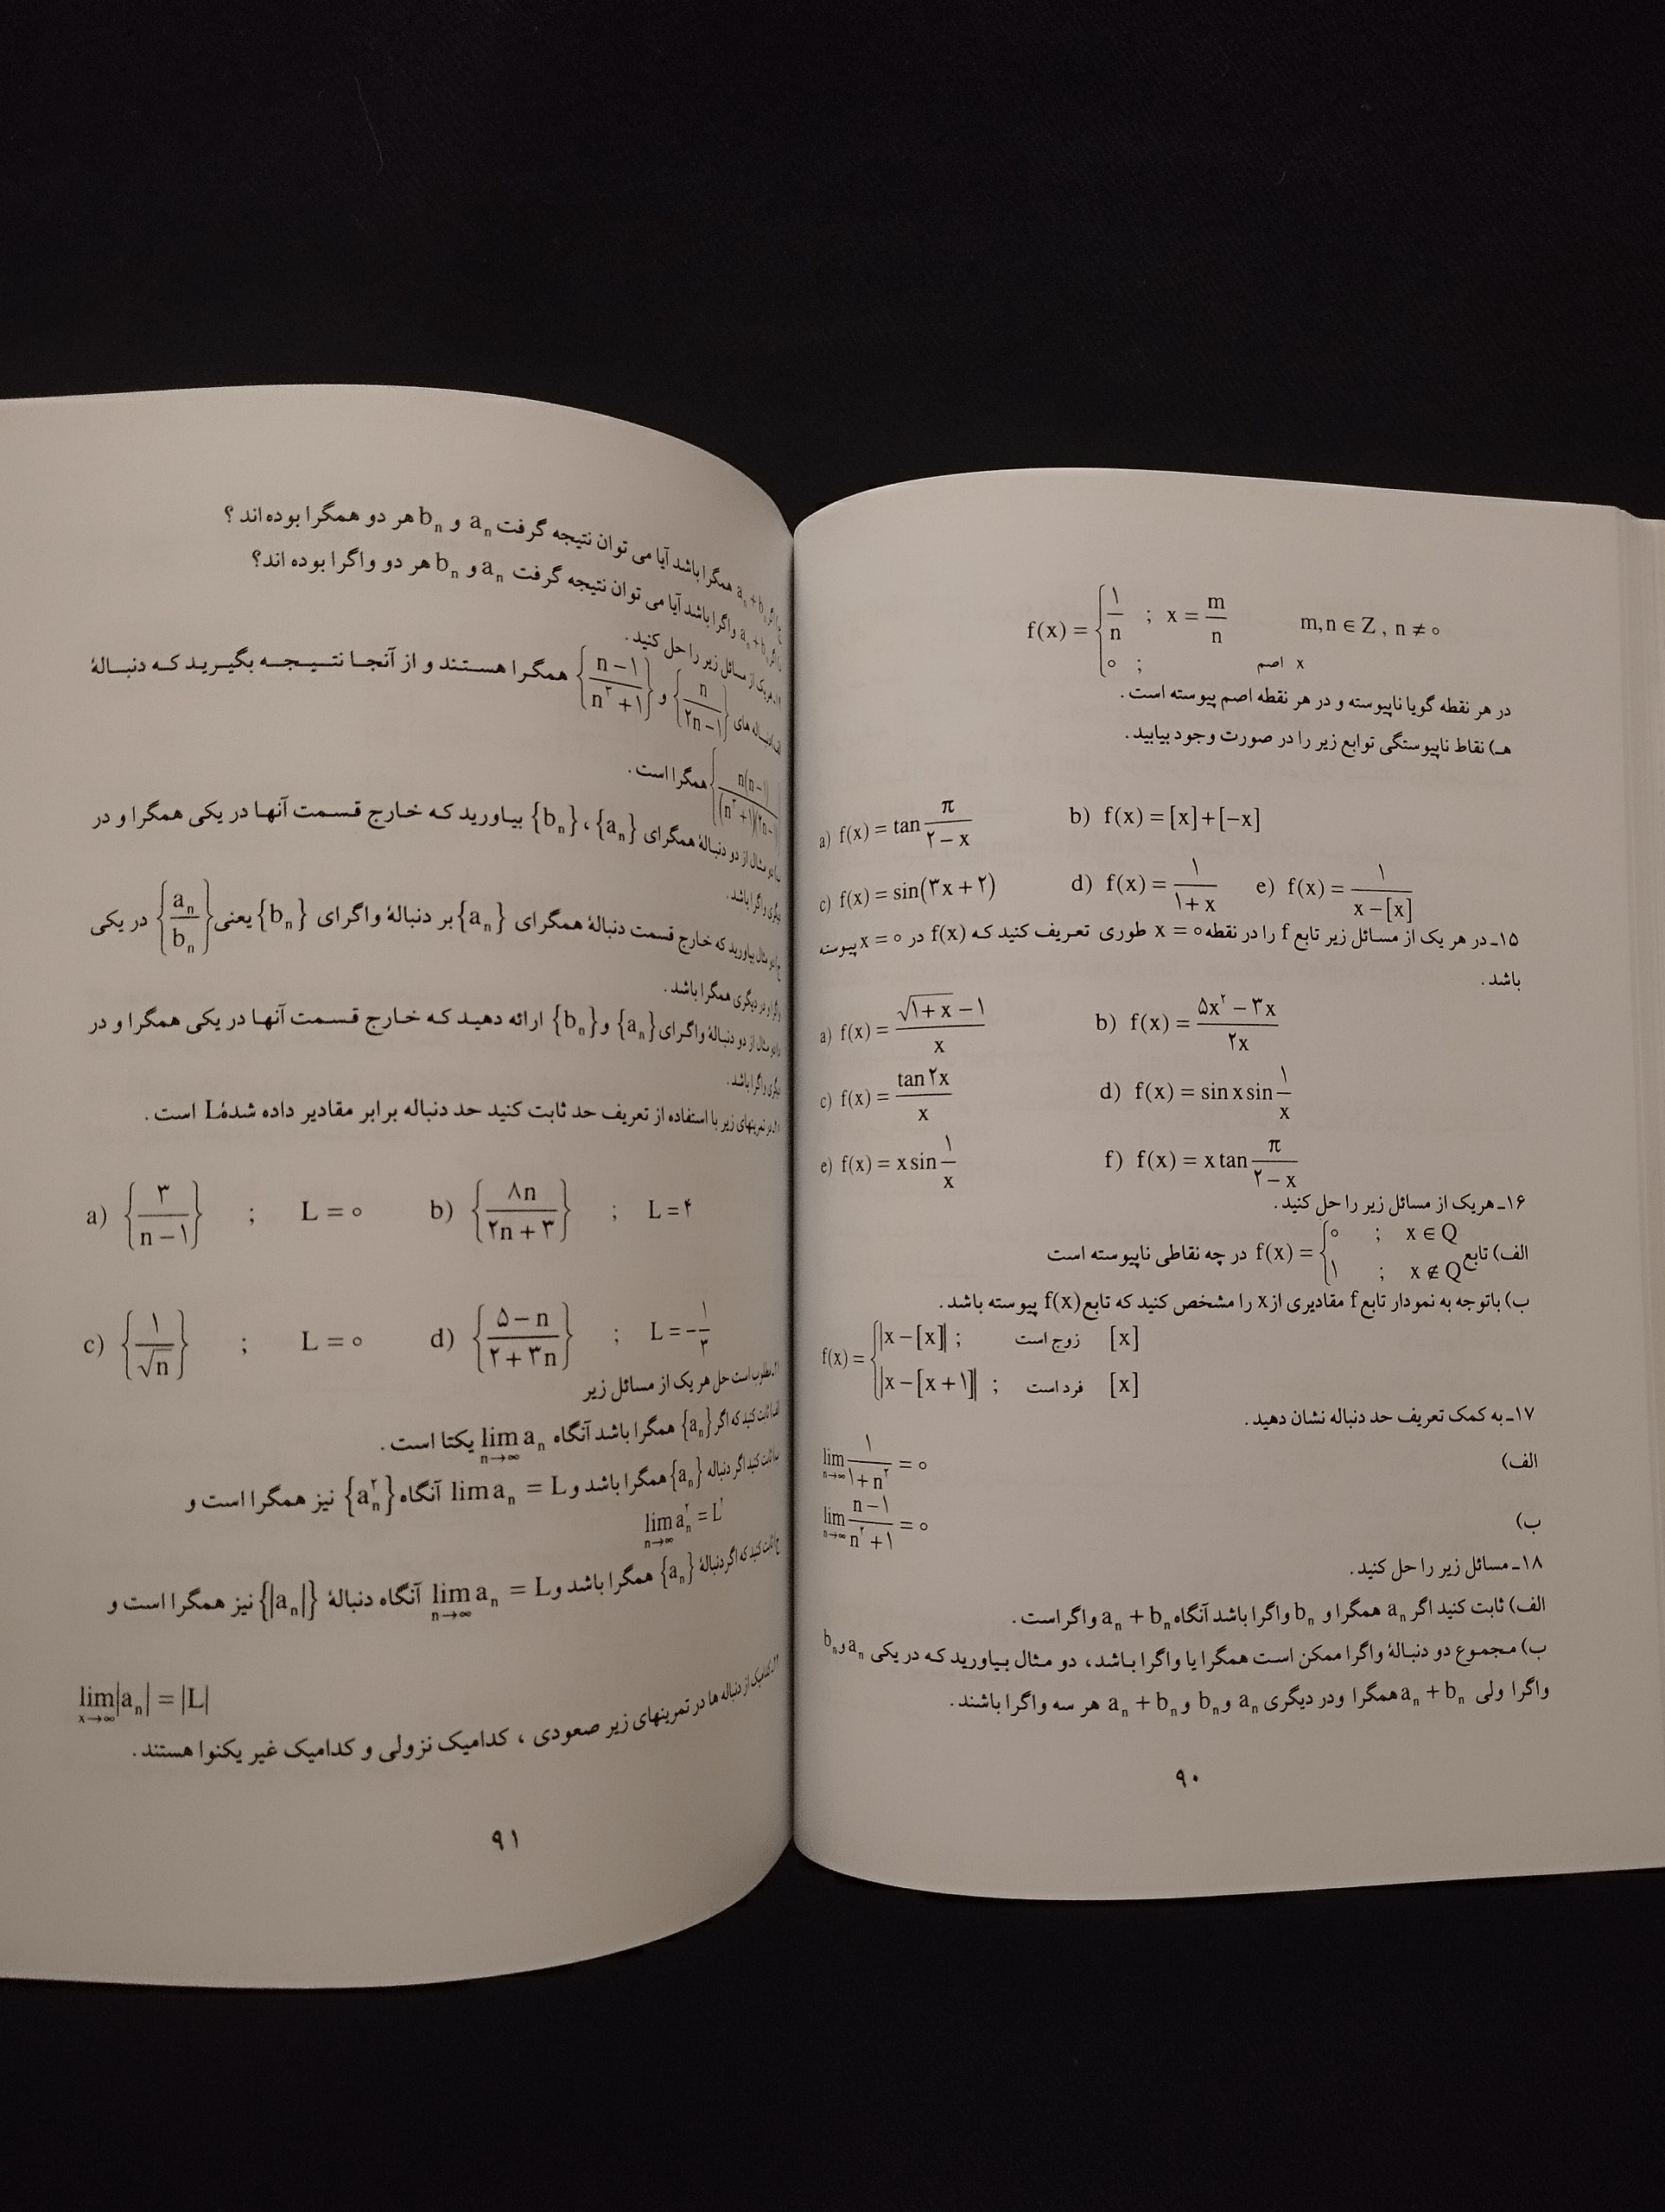 f(x) = { ۱/n ; x = m/n m,n ∈ Z , n ≠ ۰
۰ ; x اصم
در هر نقطه گویا ناپیوسته و در هر نقطه اصم پیوسته است .
هـ) نقاط ناپیوستگی توابع زیر را در صورت وجود بیابید .
a) f(x) = tan π/(۲ − x) b) f(x) = [x]+[−x]
c) f(x) = sin(۳x + ۲) d) f(x) = ۱/(۱+ x) e) f(x) = ۱/(x − [x])
۱۵ـ در هر یک از مسائل زیر تابع f را در نقطه x = ۰ طوری تعریف کنید که f(x) در x = ۰ پیوسته
باشد .
a) f(x) = (√(۱+ x) − ۱)/x b) f(x) = (۵x^۲ − ۳x)/۲x
c) f(x) = tan ۲x/x d) f(x) = sin x sin ۱/x
e) f(x) = x sin ۱/x f) f(x) = x tan π/(۲ − x)
۱۶ـ هریک از مسائل زیر را حل کنید .
الف) تابع f(x) = { ۰ ; x ∈ Q
۱ ; x ∉ Q در چه نقاطی ناپیوسته است
ب) باتوجه به نمودار تابع f مقادیری از x را مشخص کنید که تابع f(x) پیوسته باشد .
f(x) = { |x − [x]| ; زوج است [x]
|x − [x + ۱]| ; فرد است [x]
۱۷ـ به کمک تعریف حد دنباله نشان دهید .
الف) lim n→∞ ۱/(۱+ n^۲) = ۰
ب) lim n→∞ (n − ۱)/(n^۲ + ۱) = ۰
۱۸ـ مسائل زیر را حل کنید .
الف) ثابت کنید اگر a_n همگرا و b_n واگرا باشد آنگاه a_n + b_n واگراست .
ب) مجموع دو دنبالهٔ واگرا ممکن است همگرا یا واگرا باشد، دو مثال بیاورید که در یکی a_n و b_n
واگرا ولی a_n + b_n همگرا ودر دیگری a_n و b_n و a_n + b_n هر سه واگرا باشند .
۹۰
ج) اگر a_n + b_n همگرا باشد آیا می توان نتیجه گرفت a_n و b_n هر دو همگرا بوده اند ؟
د) اگر a_n + b_n واگرا باشد آیا می توان نتیجه گرفت a_n و b_n هر دو واگرا بوده اند؟
هریک از مسائل زیر را حل کنید .
الف) دنباله های {n/(۲n − ۱)} و {(n − ۱)/(n^۲ + ۱)} همگرا هستند و از آنجا نتیجه بگیرید که دنبالهٔ
{n(n − ۱)/((n^۲ + ۱)(۲n − ۱))} همگرا است .
ب) دو مثال از دو دنبالهٔ همگرای {a_n} ، {b_n} بیاورید که خارج قسمت آنها در یکی همگرا و در
دیگری واگرا باشد .
ج) دو مثال بیاورید که خارج قسمت دنبالهٔ همگرای {a_n} بر دنبالهٔ واگرای {b_n} یعنی {a_n/b_n} در یکی
واگرا و در دیگری همگرا باشد .
د) دو مثال از دو دنبالهٔ واگرای {a_n} و {b_n} ارائه دهید که خارج قسمت آنها در یکی همگرا و در
دیگری واگرا باشد .
در تمرینهای زیر با استفاده از تعریف حد ثابت کنید حد دنباله برابر مقادیر داده شدهٔ L است .
a) {۳/(n − ۱)} ; L = ۰ b) {۸n/(۲n + ۳)} ; L = ۴
c) {۱/√n} ; L = ۰ d) {(۵ − n)/(۲ + ۳n)} ; L = −۱/۳
مطلوب است حل هر یک از مسائل زیر
الف) ثابت کنید که اگر {a_n} همگرا باشد آنگاه lim n→∞ a_n یکتا است .
ب) ثابت کنید اگر دنباله {a_n} همگرا باشد و lim a_n = L آنگاه {a_n^۲} نیز همگرا است و
lim n→∞ a_n^۲ = L^۲
ج) ثابت کنید که اگر دنبالهٔ {a_n} همگرا باشد و lim n→∞ a_n = L آنگاه دنبالهٔ {|a_n|} نیز همگرا است و
lim x→∞ |a_n| = |L|
کدامیک از دنباله ها در تمرینهای زیر صعودی ، کدامیک نزولی و کدامیک غیر یکنوا هستند .
۹۱